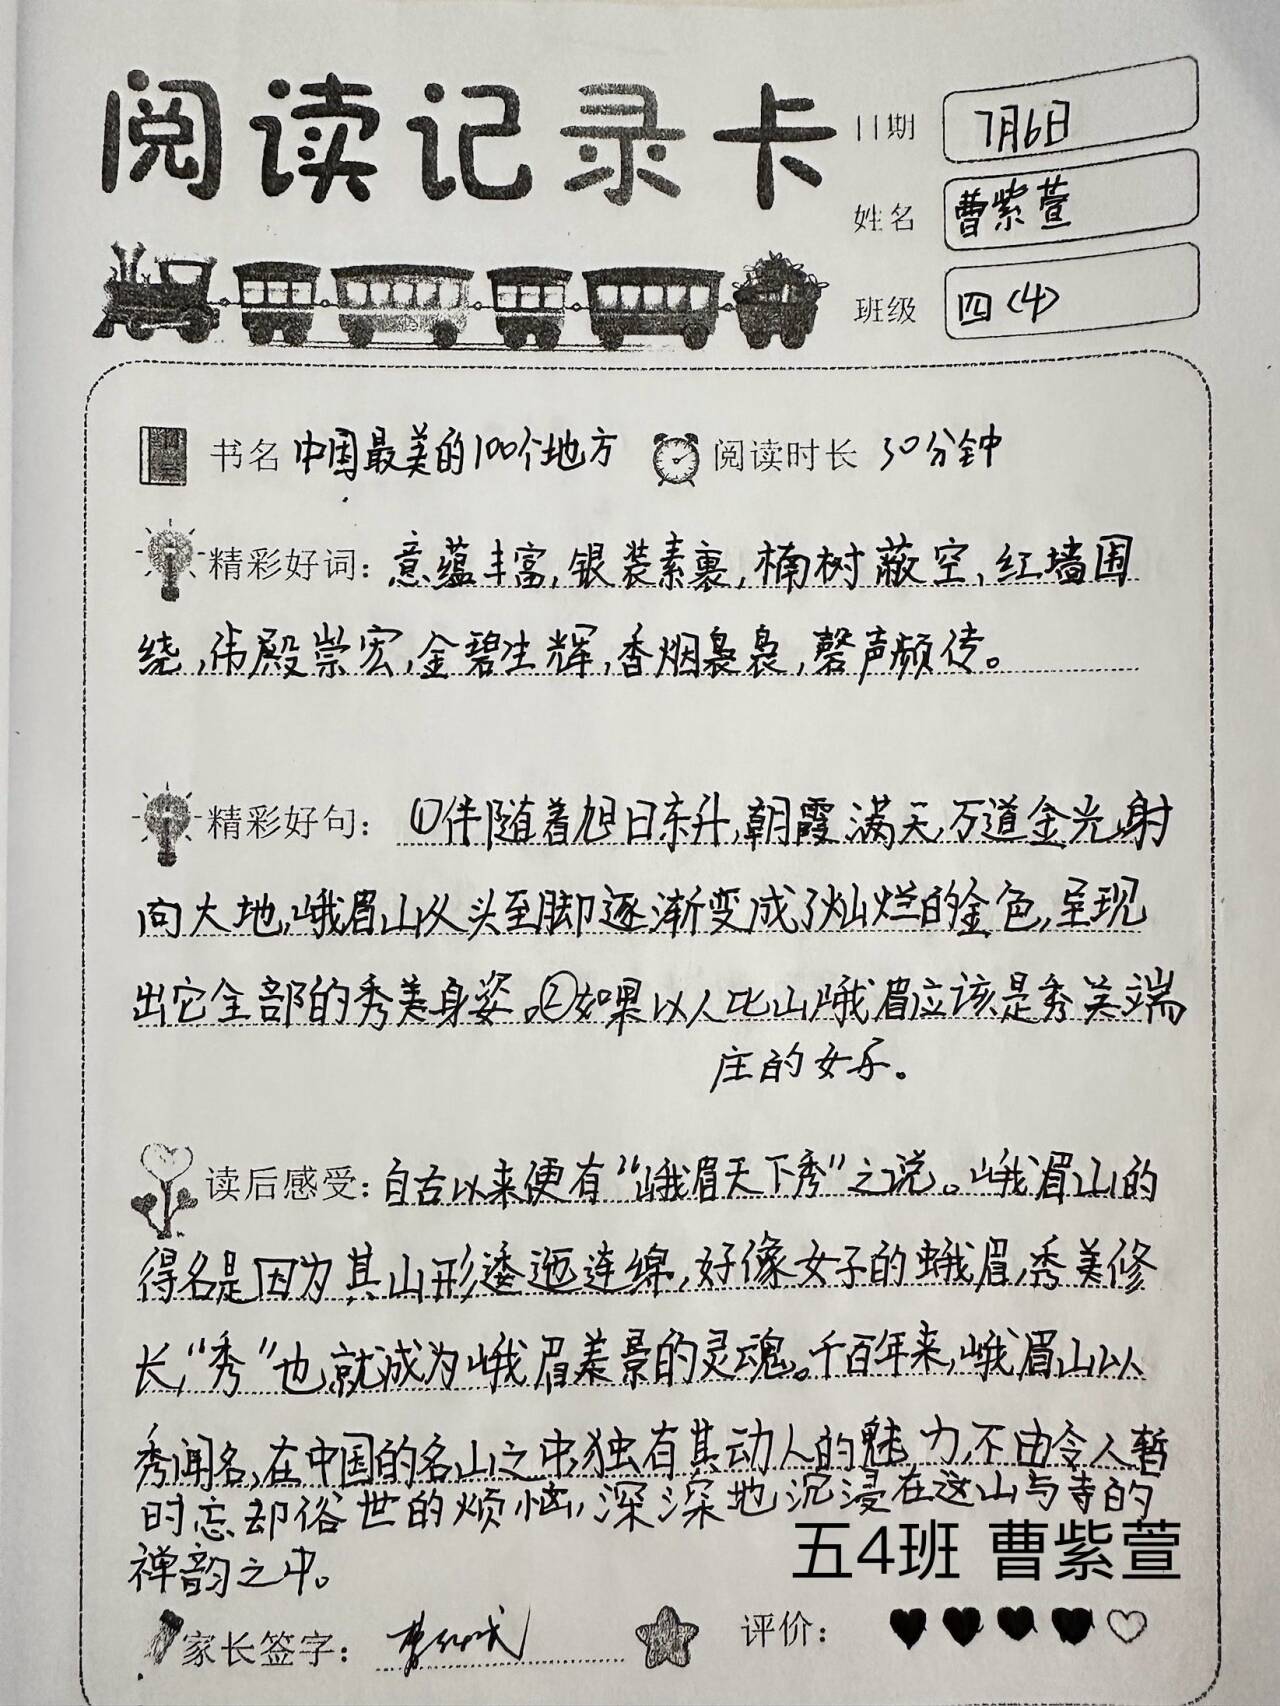 阅读记录卡
日期 7月6日
姓名 曹紫萱
班级 四(4)
书名 中国最美的100个地方 阅读时长 30分钟
精彩好词：意蕴丰富,银装素裹,楠树蔽空,红墙围
绕,伟殿崇宏,金碧生辉,香烟袅袅,磬声频传。
精彩好句：①伴随着旭日东升,朝霞满天,万道金光射
向大地,峨眉山从头至脚逐渐变成了灿烂的金色,呈现
出它全部的秀美身姿。②如果以人比山峨眉应该是秀美端
庄的女子。
读后感受：自古以来便有“峨眉天下秀”之说。峨眉山的
得名是因为其山形逶迤连绵,好像女子的蛾眉,秀美修
长,“秀”也就成为峨眉美景的灵魂。千百年来,峨眉山以
秀闻名,在中国的名山之中独有其动人的魅力,不由令人暂
时忘却俗世的烦恼,深深地沉浸在这山与寺的
禅韵之中。
五4班 曹紫萱
家长签字： 评价：